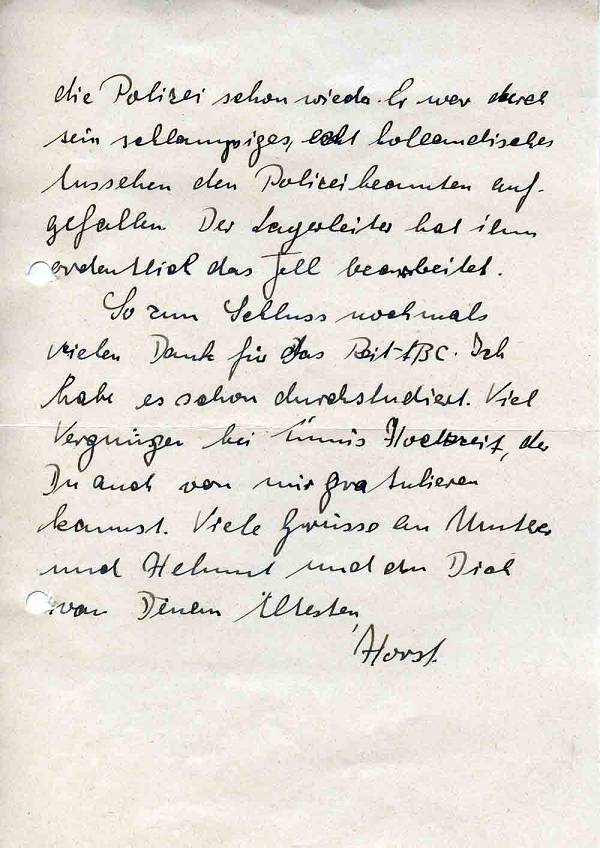 die Polizei schon wieder. Er war durch
sein schlampiges, echt holländisches
Aussehen den Polizeibeamten auf-
gefallen. Der Lagerleiter hat ihm
ordentlich das Fell bearbeitet.
So zum Schluss nochmals
vielen Dank für das Reit-ABC. Ich
habe es schon durchstudiert. Viel
Vergnügen bei Hochzeit, der
Du auch von mir gratulieren
kannst. Viele Grüsse an Mutter
und Helmut und an Dich
von Deinem Ältesten,
Horst.